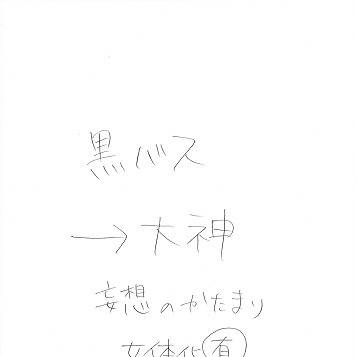 黒バス
→大神
妄想のかたまり
女体化有